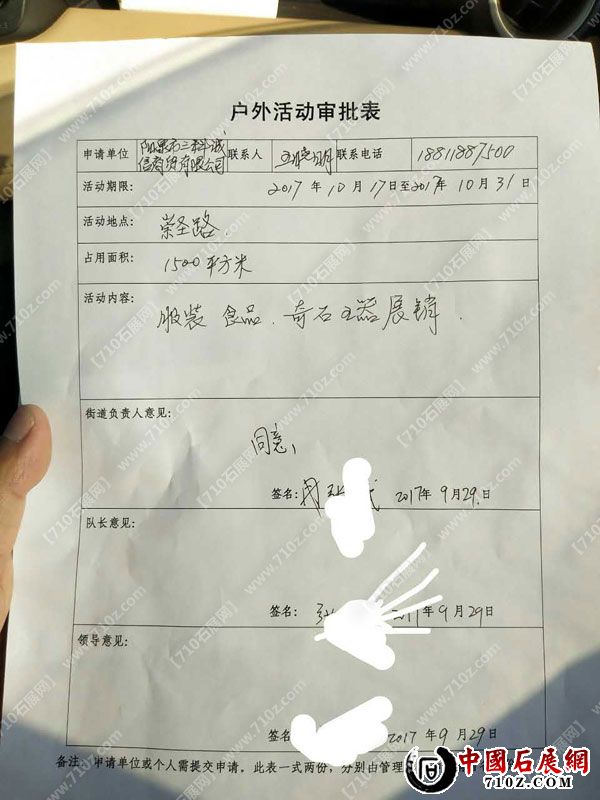 户外活动审批表
申请单位 阳泉市三科诚信商贸有限公司 联系人 联系电话 18811887500
活动期限: 2017年10月17日至2017年10月31日
活动地点: 崇圣路.
占用面积: 1500平方米
活动内容:
服装 食品.奇石玉器展销.
街道负责人意见:
同意,
签名: 2017年9月29.日
队长意见:
签名: 2017年9月29日
领导意见:
签名: 2017年9月29日
备注: 申请单位或个人需提交申请。此表一式两份，分别由管理
中國石展網
710Z.COM
【710石展网】
www.710z.com